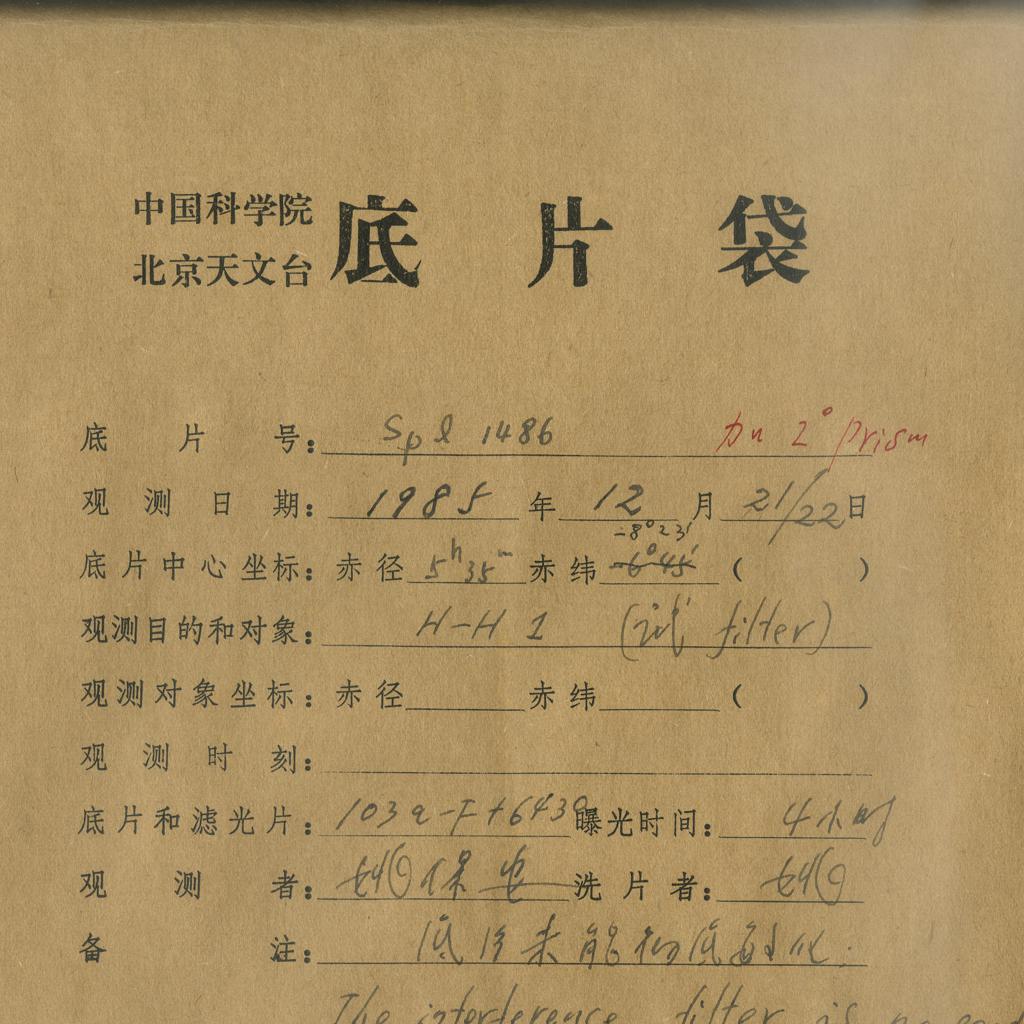 中国科学院
北京天文台
底片袋
底片号: Spl 1486 加 2° prism
观测日期: 1985 年 12 月 21/22 日
-8°23'
底片中心坐标: 赤径 5h35m 赤纬 -6°45' ( )
观测目的和对象: H-H 1 (试 filter)
观测对象坐标: 赤径 赤纬 ( )
观测时刻:
底片和滤光片: 103a-F+6430 曝光时间: 4小时
观测者: 保 洗片者:
备注: 底片未能彻底敏化.
The interference filter is